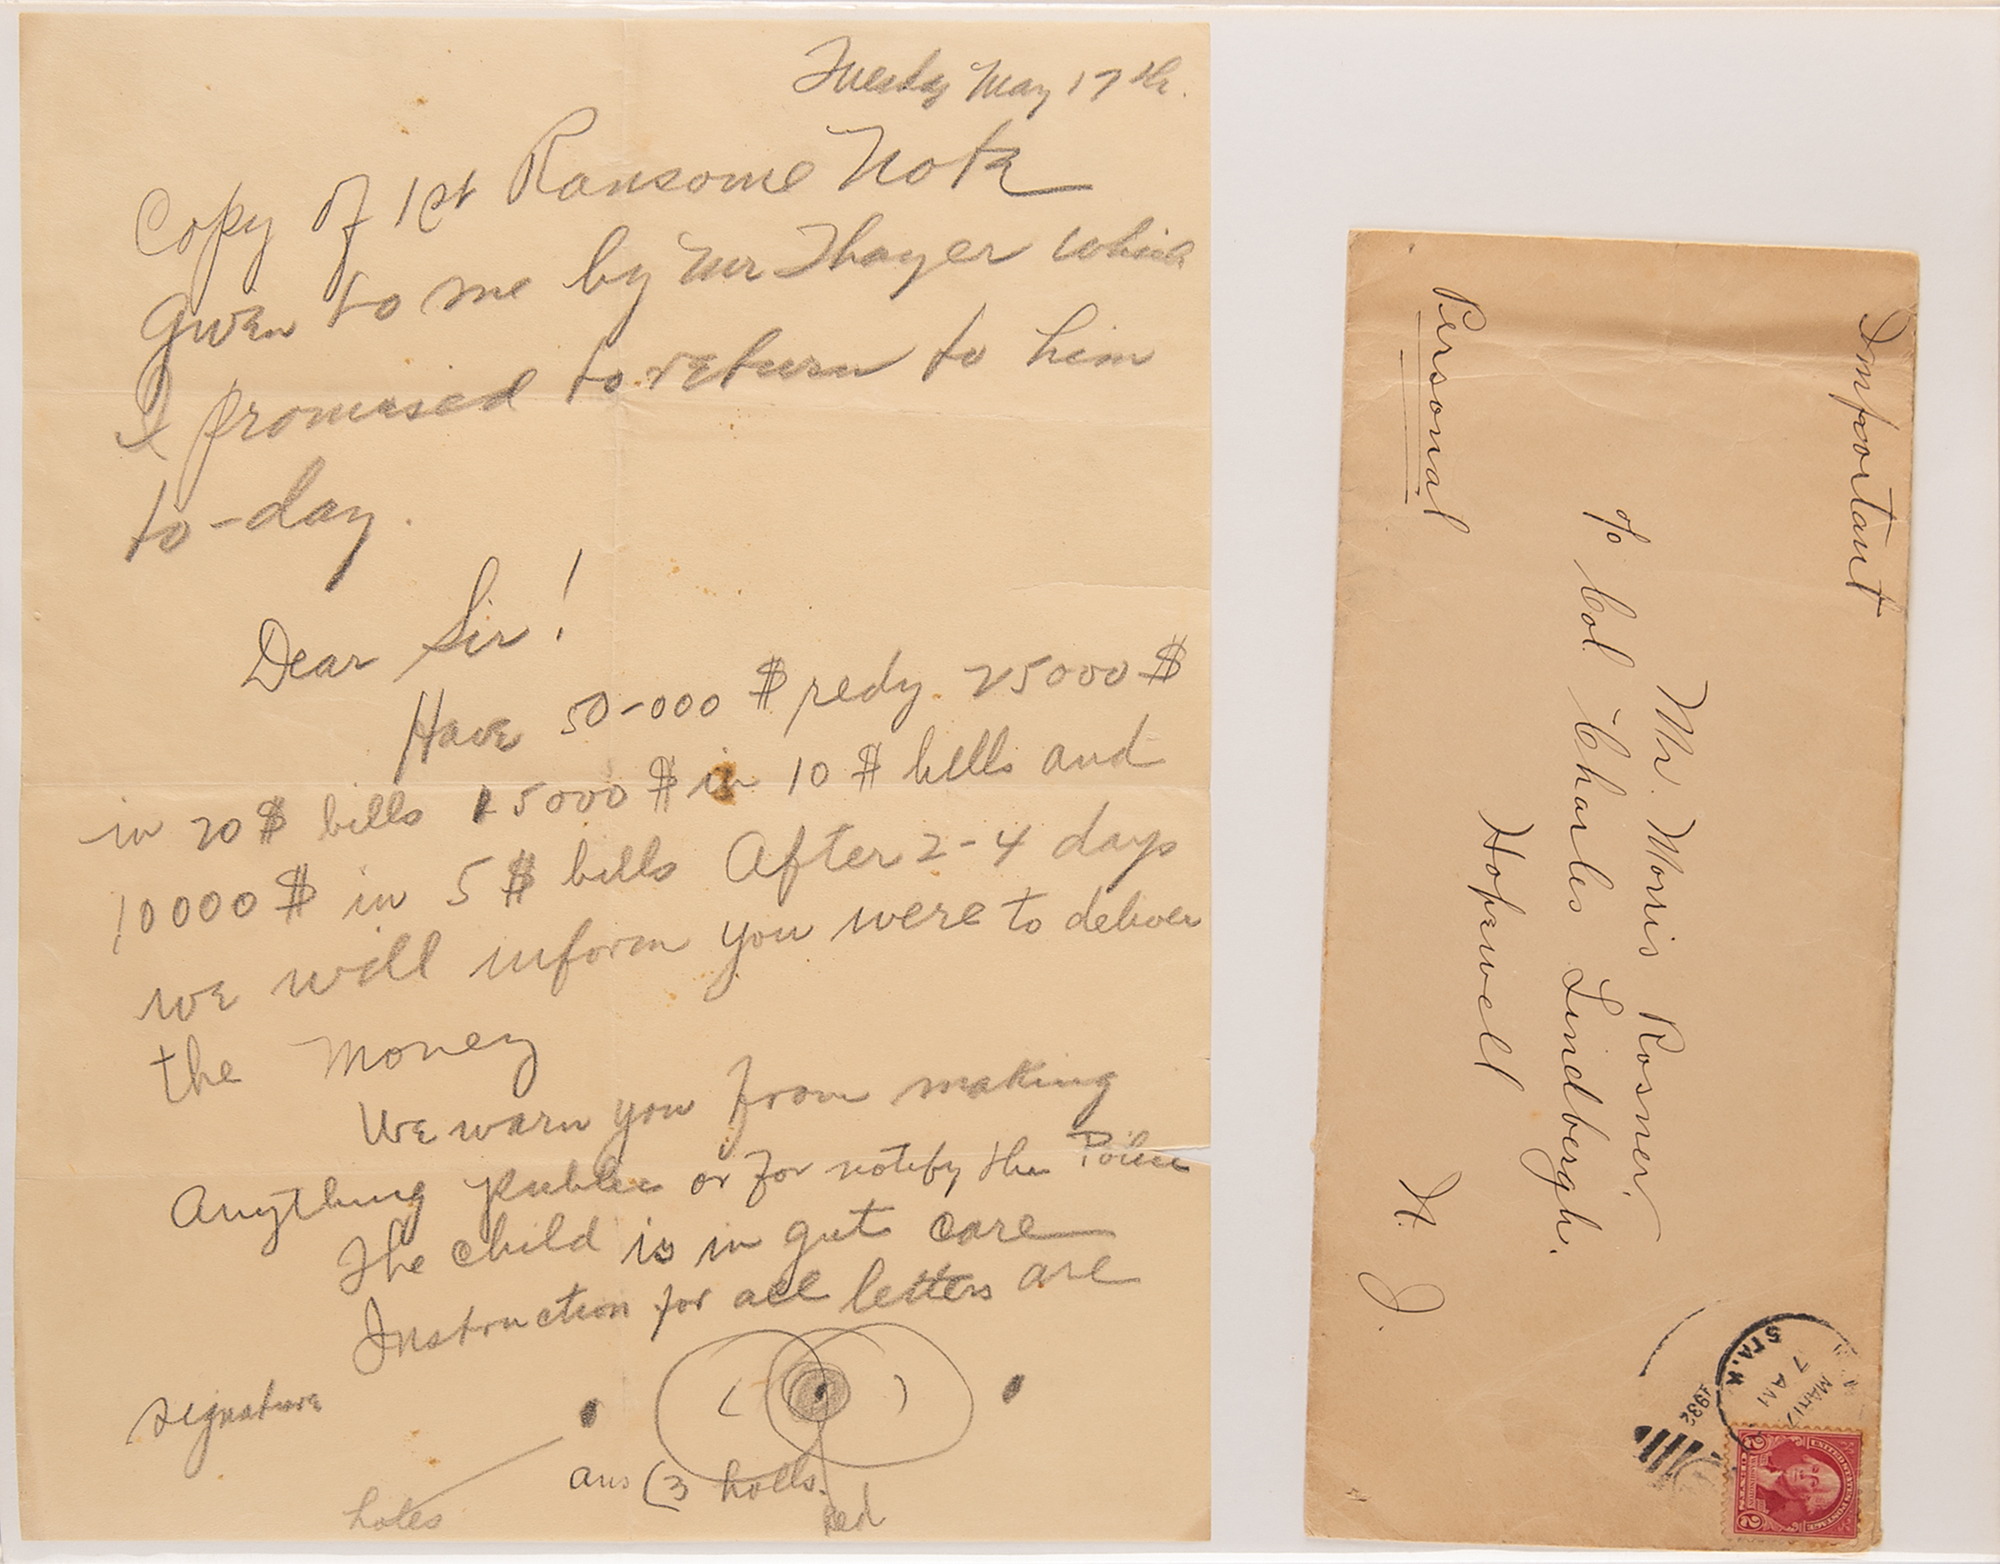 Tuesday May 17th.
Copy of 1st Ransome Note
given to me by Mr Thayer which
I promised to return to him
to-day.
Dear Sir!
Have 50-000 $ redy 25000 $
in 20 $ bills 15000 $ in 10 $ bills and
10000 $ in 5 $ bills After 2-4 days
we will inform you were to deliver
the Money
We warn you from making
Anything public or for notify the Police
The child is in gut care
Instruction for all letters are
signature
ans (3 holls.
holes
red
Important
Personal
Mr. Morris Rosner,
c/o Col Charles Lindbergh.
Hopewell
N. J.
STA. K
MAR 17
7 AM
1932
UNITED STATES POSTAGE
WASHINGTON
2 CENTS 2